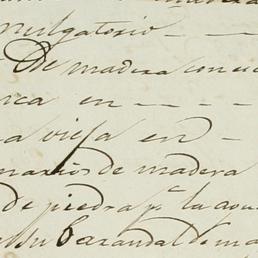 purgatorio - -
De madera con su
rca en - - - -
a vieja en -
narios de madera
de piedra pª la agu
su Barandal de ma